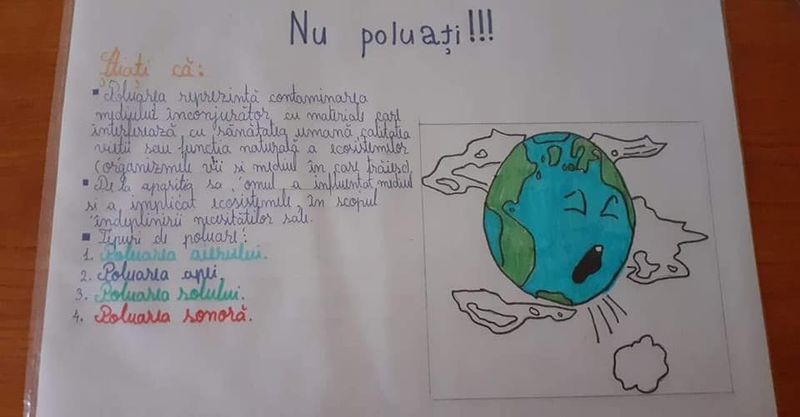 Nu poluați!!!
Știați că:
Poluarea reprezintă contaminarea
mediului înconjurător cu materiale care
interferează cu sănătatea umană calitatea
vieții sau funcția naturală a ecosistemelor
(organizmele vii si mediul în care trăiesc)
De la apariția sa, omul a influentat mediul
si a implicat ecosistemele în scopul
îndeplinirii necesităților sale.
Tipuri de poluare:
1. Poluarea aerului.
2. Poluarea apei.
3. Poluarea solului.
4. Poluarea sonoră.